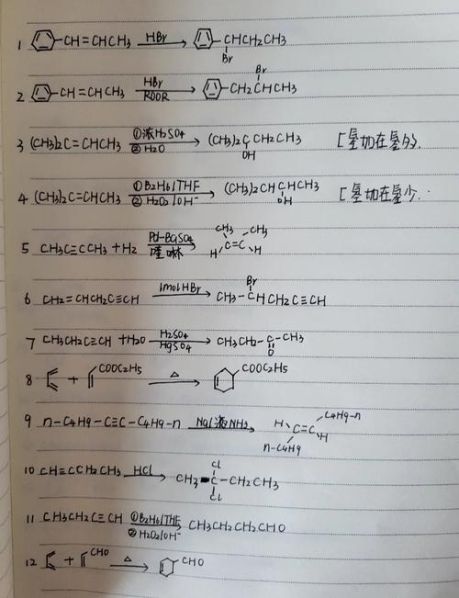 1 -CH=CHCH3 HBr CHCH2CH3 Br
2 -CH=CHCH3 HBr ROOR CH2CHCH3 Br
3 (CH3)2C=CHCH3 ①浓H2SO4 ②H2O (CH3)2CCH2CH3 OH [氢加在氢多).
4 (CH3)2C=CHCH3 ①B2H6/THF ②H2O2/OH- (CH3)2CHCHCH3 OH [氢加在氢少.
5 CH3C≡CCH3 + H2 Pd-BaSO4 喹啉 CH3 CH3 C=C H H
6 CH2=CHCH2C≡CH 1molHBr CH3-CHCH2C≡CH Br
7 CH3CH2C≡CH +H2O H2SO4 HgSO4 CH3CH2-C-CH3 O
8 + COOC2H5 △ COOC2H5
9 n-C4H9-C≡C-C4H9-n Na/液NH3 H C4H9-n C=C n-C4H9 H
10 CH≡CCH2CH3 HCl CH3-C-CH2CH3 Cl Cl
11 CH3CH2C≡CH ①B2H6/THF ②H2O2/OH- CH3CH2CH2CHO
12 + CHO △ CHO